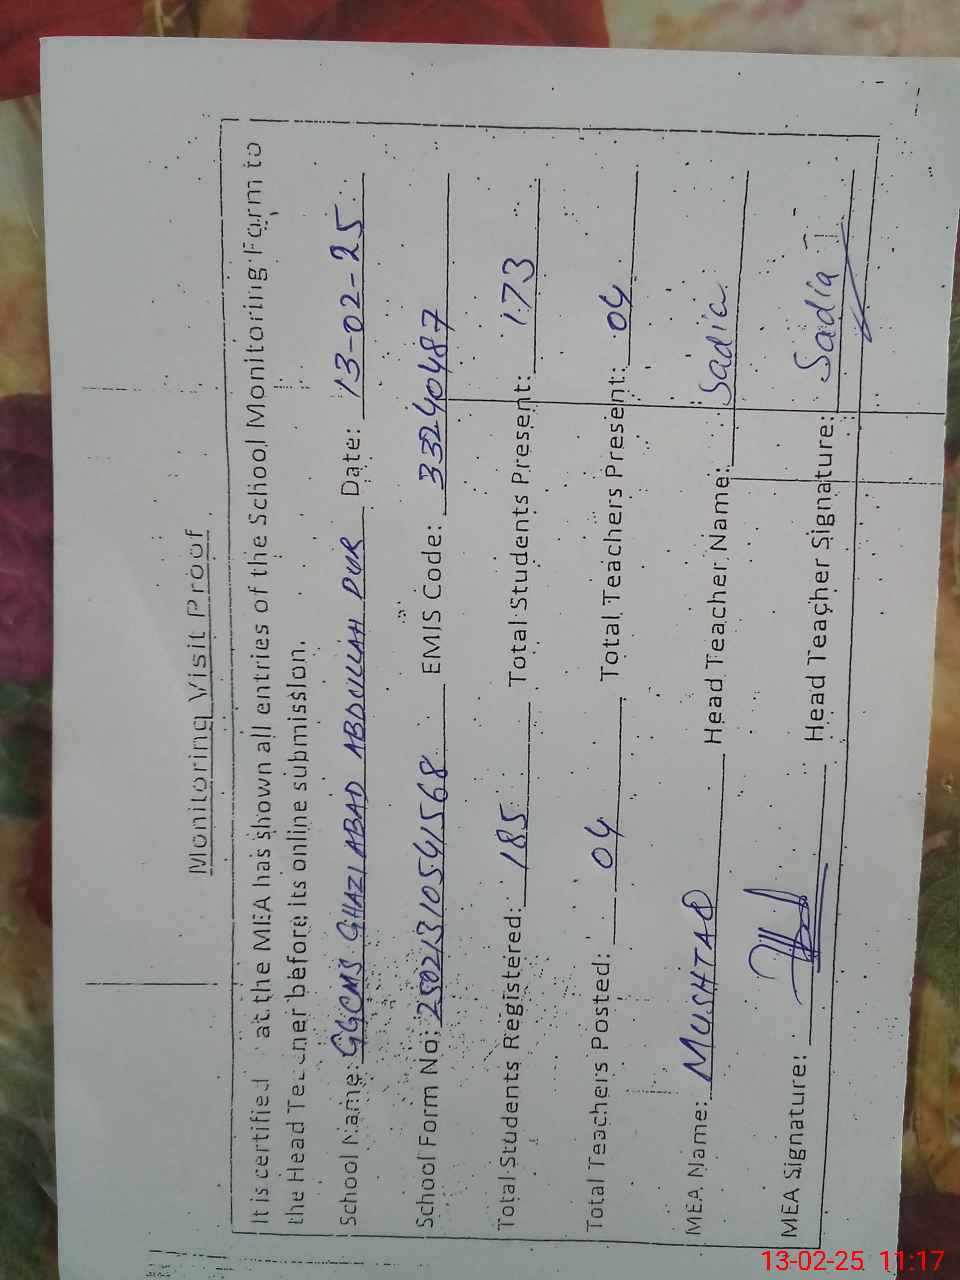 Monitoring Visit Proof
It is certified at the MEA has shown all entries of the School Monitoring Form to
the Head Teacher before its online submission.
School Name: GGCMS GHAZI ABAD ABDULLAH PUR Date: 13-02-25
School Form No: 25021310541568 EMIS Code: 33240487
Total Students Registered: 185 Total Students Present: 173
Total Teachers Posted: 04 Total Teachers Present: 04
MEA Name: MUSHTAQ Head Teacher Name: Sadia
MEA Signature: Head Teacher Signature: Sadia
13-02-25 11:17